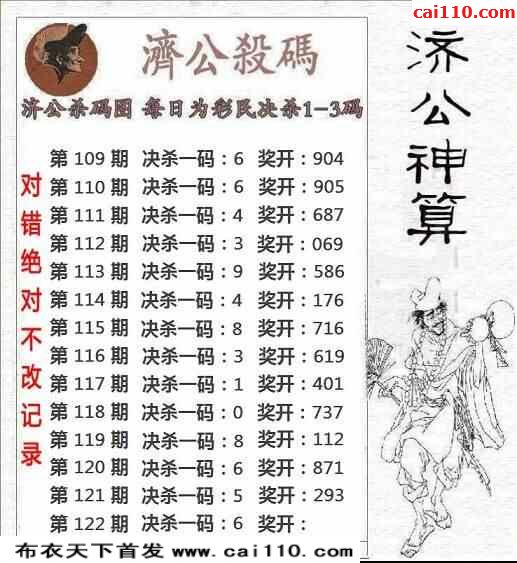 cai110.com
濟公殺碼
济公杀码图 每日为彩民决杀1-3码
济公神算
对错绝对不改记录
第 109 期 决杀一码：6 奖开：904
第 110 期 决杀一码：6 奖开：905
第 111 期 决杀一码：4 奖开：687
第 112 期 决杀一码：3 奖开：069
第 113 期 决杀一码：9 奖开：586
第 114 期 决杀一码：4 奖开：176
第 115 期 决杀一码：8 奖开：716
第 116 期 决杀一码：3 奖开：619
第 117 期 决杀一码：1 奖开：401
第 118 期 决杀一码：0 奖开：737
第 119 期 决杀一码：8 奖开：112
第 120 期 决杀一码：6 奖开：871
第 121 期 决杀一码：5 奖开：293
第 122 期 决杀一码：6 奖开：
布衣天下首发 www.cai110.com